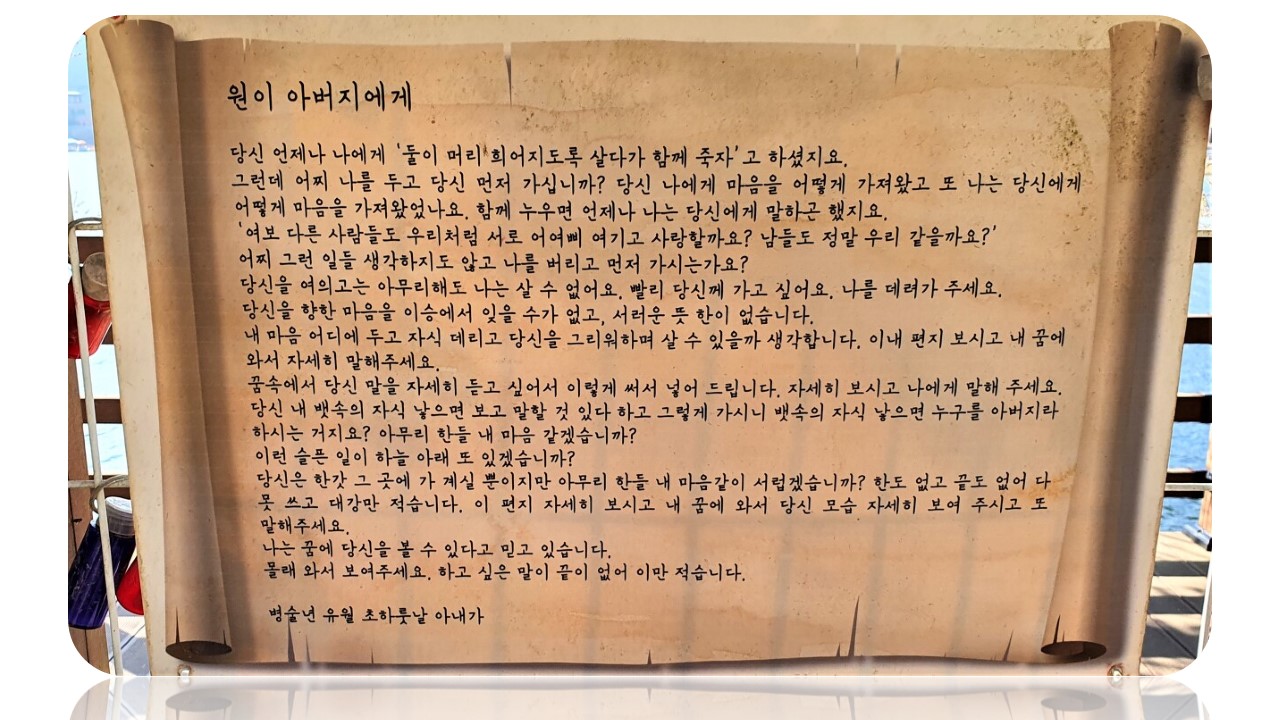 원이 아버지에게
당신 언제나 나에게 '둘이 머리 희어지도록 살다가 함께 죽자'고 하셨지요.
그런데 어찌 나를 두고 당신 먼저 가십니까? 당신 나에게 마음을 어떻게 가져왔고 또 나는 당신에게
어떻게 마음을 가져왔었나요. 함께 누우면 언제나 나는 당신에게 말하곤 했지요.
'여보 다른 사람들도 우리처럼 서로 어여삐 여기고 사랑할까요? 남들도 정말 우리 같을까요?'
어찌 그런 일들 생각하지도 않고 나를 버리고 먼저 가시는가요?
당신을 여의고는 아무리해도 나는 살 수 없어요. 빨리 당신께 가고 싶어요. 나를 데려가 주세요.
당신을 향한 마음을 이승에서 잊을 수가 없고, 서러운 뜻 한이 없습니다.
내 마음 어디에 두고 자식 데리고 당신을 그리워하며 살 수 있을까 생각합니다. 이내 편지 보시고 내 꿈에
와서 자세히 말해주세요.
꿈속에서 당신 말을 자세히 듣고 싶어서 이렇게 써서 넣어 드립니다. 자세히 보시고 나에게 말해 주세요.
당신 내 뱃속의 자식 낳으면 보고 말할 것 있다 하고 그렇게 가시니 뱃속의 자식 낳으면 누구를 아버지라
하시는 거지요? 아무리 한들 내 마음 같겠습니까?
이런 슬픈 일이 하늘 아래 또 있겠습니까?
당신은 한갓 그 곳에 가 계실 뿐이지만 아무리 한들 내 마음같이 서럽겠습니까? 한도 없고 끝도 없어 다
못 쓰고 대강만 적습니다. 이 편지 자세히 보시고 내 꿈에 와서 당신 모습 자세히 보여 주시고 또
말해주세요.
나는 꿈에 당신을 볼 수 있다고 믿고 있습니다.
몰래 와서 보여주세요. 하고 싶은 말이 끝이 없어 이만 적습니다.
병술년 유월 초하룻날 아내가